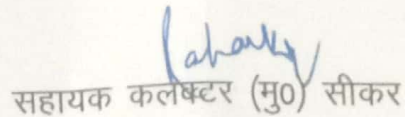 सहायक कलेक्टर (मु0) सीकर